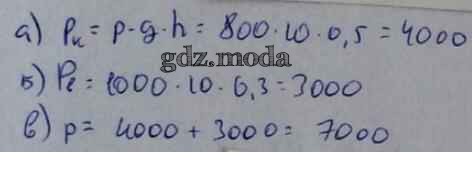 а) Pк = p·g·h = 800·10·0,5 = 4000
gdz.moda
б) P₂ = 1000·10·0,3 = 3000
в) p = 4000 + 3000 = 7000